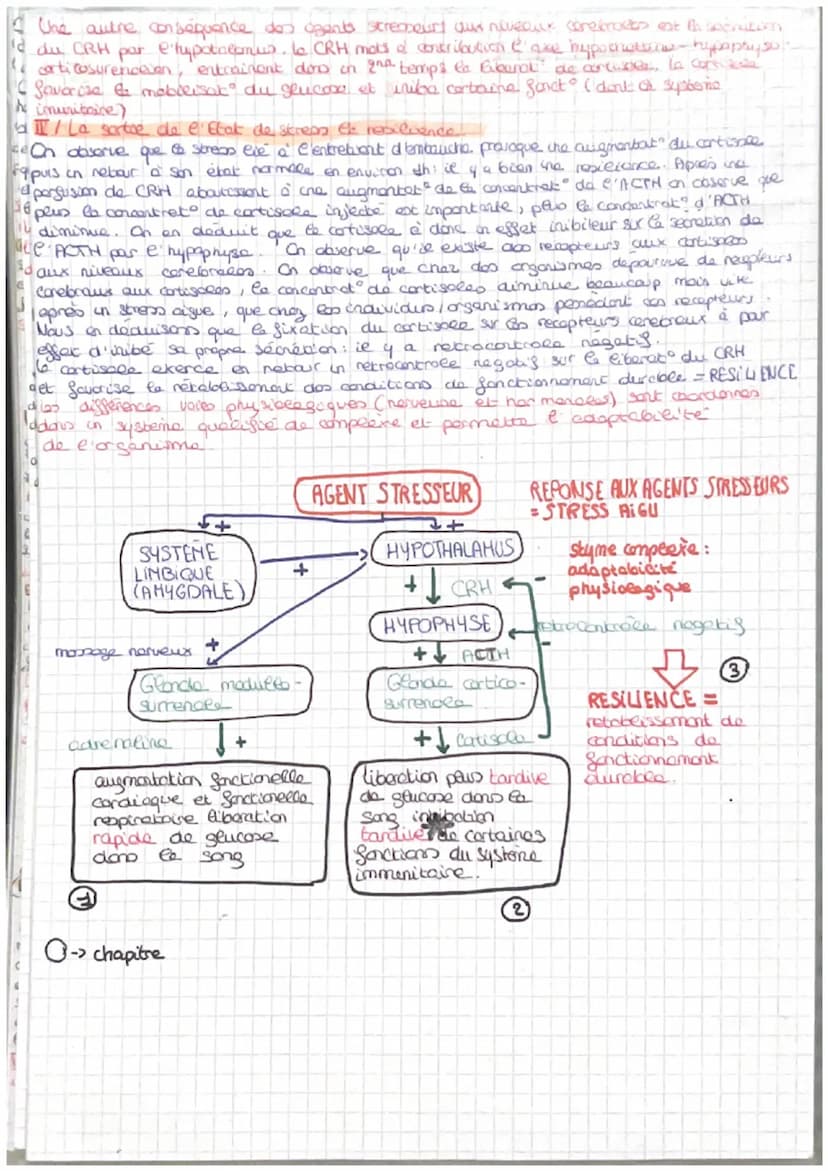 Une autre conséquence des agents stresseurs aux niveaux cérébrales est la sécrétion
du CRH par l'hypothalamus. le CRH mets à contribution l'axe hypothalamo-hypophyso-
corticosurénalien, entrainant dans un 2nd temps la libérat° de cortisoles. la cortisole
favorise la mobilisat° du glucose et inibe certaine fonct° (dont le système
imunitaire)
III / La sortie de l'Etat de stress et resilience.
On observe que le stress lié à l'entretient d'embauche provoque une augmentat° du cortisole
puis un retour à son état normale en environ 4h : il y a bien une résilience. Après une
perfusion de CRH aboutissant à une augmentat° de la concentrat° de l'ACTH on observe que
plus la concentrat° de cortisole injecté est importante, plus la concentrat° d'ACTH
diminue. On en déduit que le cortisole à donc un effet inibiteur sur la sécrétion de
l'ACTH par l'hypophyse. On observe qu'il existe des récepteurs aux cortisoles
aux niveaux cérébrales. On observe que chez des organismes dépourvue de récepteurs
cérébraux aux cortisoles, la concentrat° de cortisoles diminue beaucoup moins vite
après un stress aigue, que chez les individus/organismes possédant ces récepteurs.
Nous en déduisons que la fixation du cortisole sur les récepteurs cérébraux à par
effet d'inibé sa propre sécrétion : il y a retrocontrole négatif.
le cortisole exerce en retour un retrocontrole négatif sur la libérat° du CRH
et favorise le rétablissement des conditions de fonctionnement durable = RESILIENCE
les différences voies physiologiques (nerveuse et hormonales) sont coordonnées
dans un système qualifié de complexe et permette l'adaptabilité
de l'organisme.
AGENT STRESSEUR
REPONSE AUX AGENTS STRESSEURS
= STRESS AIGU
+ +
SYSTEME
LIMBIQUE
(AMYGDALE)
+
HYPOTHALAMUS
styme complexe :
adaptabilité
physiologique
+ CRH -
HYPOPHYSE
retrocontrôle negatif
-
message nerveux +
+ ACTH
Glande medullo-
surrenale
Glande cortico-
surrenale
3
RESILIENCE =
retablissement de
conditions de
fonctionnement
durable.
adrenaline +
+ Cortisole
augmentation fonctionelle
cardiaque et fonctionelle
respiratoire libération
rapide de glucose
dans le sang
libération plus tardive
de glucose dans le
sang inhibation
tardive de certaines
fonctions du système
immunitaire.
1
2
O -> chapitre